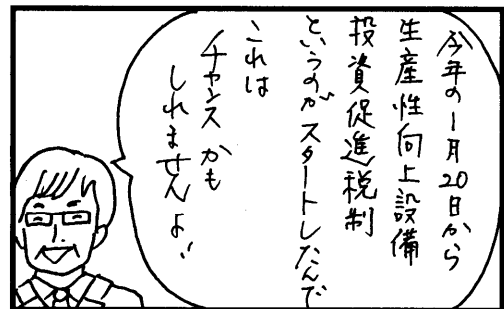 今年の1月20日から
生産性向上設備
投資促進税制
というのがスタートしたんで
これは
チャンスかも
しれませんよ!